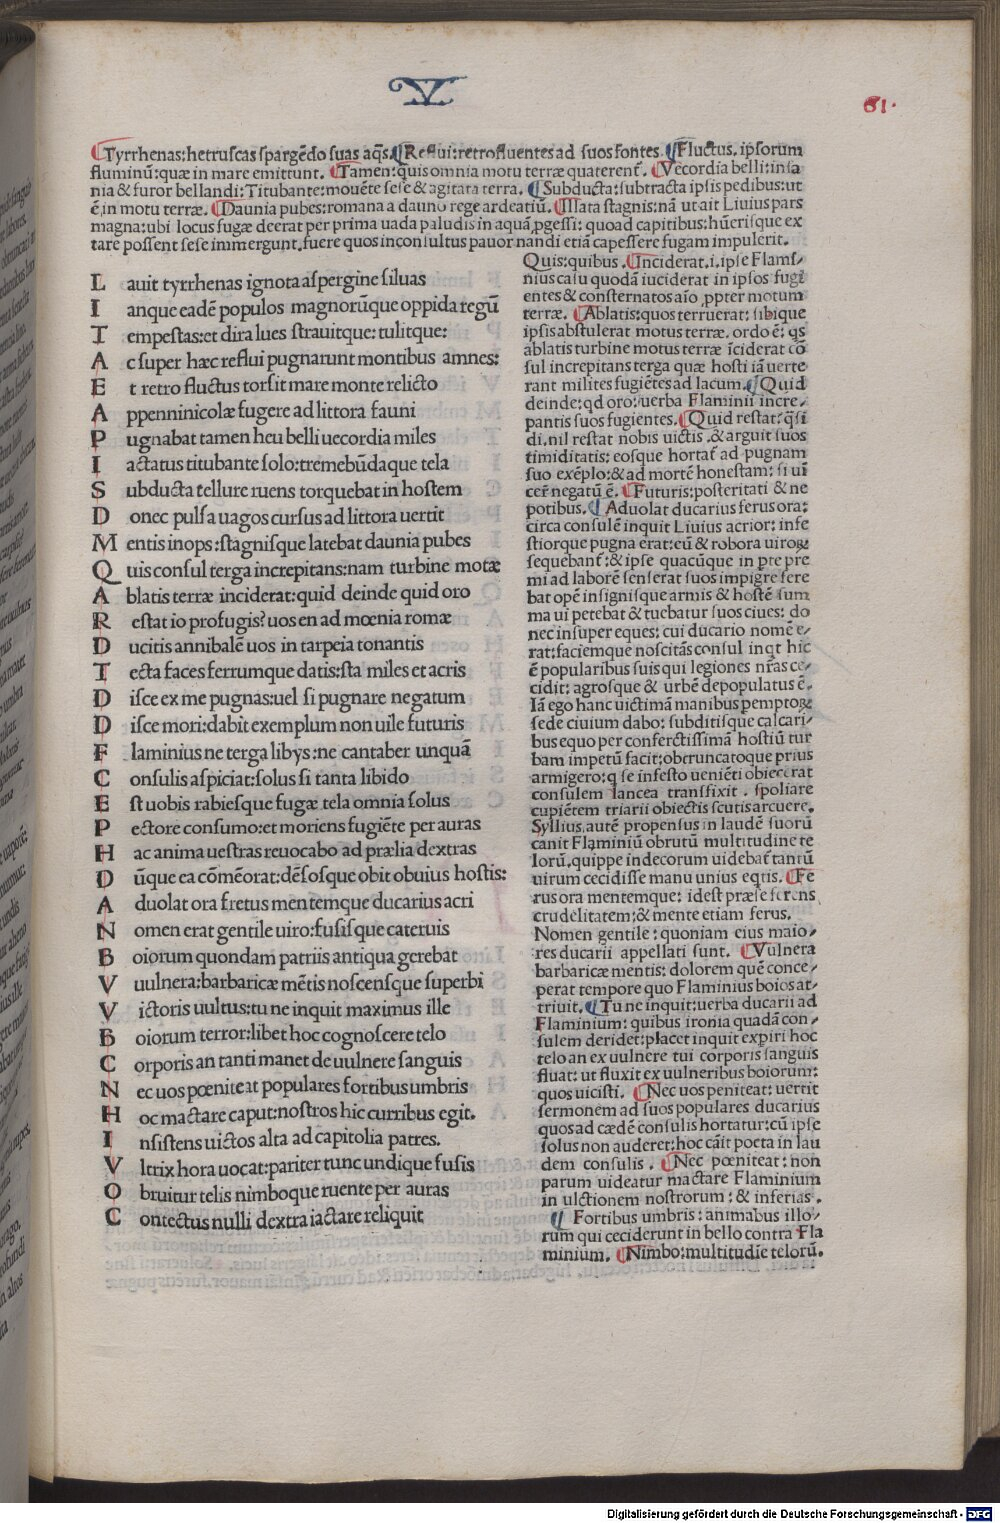 V
61.
Tyrrhenas:hetruſcas ſpargēdo ſuas aq̄s. Reflui:retrofluentes ad ſuos fontes. Fluctus. ipſorum
fluminū:quæ in mare emittunt. Tamen:quis omnia motu terræ quaterent᷑. Vecordia belli:inſa
nia & furor bellandi:Titubante:mouēte ſeſe & agitata terra. Subducta:ſubtracta ipſis pedibus:ut
ē,in motu terræ. Daunia pubes:romana a dauno rege ardeatiū. Mata ſtagnis:nā ut ait Liuius pars
magna:ubi locus fugæ deerat per prima uada paludis in aquā ꝓgeſſi: quoad capitibus:hūeriſque ex
tare poſſent ſeſe immergunt,fuere quos inconſultus pauor nandi etiā capeſſere fugam impulerit.
L auit tyrrhenas ignota aſpergine ſiluas
I anque eadē populos magnorūque oppida regū
T empeſtas:et dira lues ſtrauitque:tulitque:
A c ſuper hæc reflui pugnarunt montibus amnes:
E t retro fluctus torſit mare monte relicto
A ppenninicolæ fugere ad littora fauni
P ugnabat tamen heu belli uecordia miles
I actatus titubante ſolo:tremebūdaque tela
S ubducta tellure ruens torquebat in hoſtem
D onec pulſa uagos curſus ad littora uertit
M entis inops:ſtagniſque latebat daunia pubes
Q uis conſul terga increpitans:nam turbine motæ
A blatis terræ inciderat:quid deinde quid oro
R eſtat io profugis? uos en ad mœnia romæ
D ucitis annibalē uos in tarpeia tonantis
T ecta faces ferrumque datis:ſta miles et acris
D iſce ex me pugnas:uel ſi pugnare negatum
D iſce mori:dabit exemplum non uile futuris
F laminius ne terga libys:ne cantaber unquā
C onſulis aſpiciat:ſolus ſi tanta libido
E ſt uobis rabieſque fugæ tela omnia ſolus
P ectore conſumo:et moriens fugiēte per auras
H ac anima ueſtras reuocabo ad prælia dextras
D ūque ea cōmēorat:dēſoſque obit obuius hoſtis:
A duolat ora fretus mentemque ducarius acri
N omen erat gentile uiro:fuſiſque cateruis
B oiorum quondam patriis antiqua gerebat
V uulnera:barbaricæ mētis noſcenſque ſuperbi
V ictoris uultus:tu ne inquit maximus ille
B oiorum terror:libet hoc cognoſcere telo
C orporis an tanti manet de uulnere ſanguis
N ec uos pœniteat populares fortibus umbris
H oc mactare caput:noſtros hic curribus egit.
I nſiſtens uictos alta ad capitolia patres.
V ltrix hora uocat:pariter tunc undique fuſis
O bruitur telis nimboque ruente per auras
C ontectus nulli dextra iactare reliquit
Quis:quibus. Inciderat.i.ipſe Flami⸗
nius caſu quodā iuciderat in ipſos fugi
entes & conſternatos aīo ꝓpter motum
terræ. Ablatis:quos terruerat: ſibique
ipſis abſtulerat motus terræ. ordo ē: qs̄
ablatis turbine motus terræ īciderat cō
ſul increpitans terga quæ hoſti iā uerte
rant milites fugiētes ad lacum. Quid
deinde:qd oro:uerba Flaminii incre⸗
pantis ſuos fugientes. Quid reſtat:q̄ſi
di.nil reſtat nobis uictis .& arguit ſuos
timiditatis: eoſque hortat᷑ ad pugnam
ſuo exēplo:& ad mortē honeſtam: ſi ui
cer᷑ negatū ē. Futuris:poſteritati & ne
potibus. Aduolat ducarius ferus ora:
circa conſulē inquit Liuius acrior: infe
ſtiorque pugna erat:eū & robora uiroꝝ
ſequebant᷑:& ipſe quacūque in ꝑte pre
mi ad laborē ſenſerat ſuos impigre fere
bat opē inſigniſque armis & hoſtē ſum
ma ui petebat & tuebatur ſuos ciues: do
nec inſuper eques: cui ducario nomē e⸗
rat:faciemque noſcitās conſul inqt hic
ē popularibus ſuis qui legiones nr̄as ce⸗
cidit: agroſque & urbē depopulatus ē.
Iā ego hanc uictimā manibus pemptoꝝ
ſede ciuium dabo: ſubditiſque calcari⸗
bus equo per confertiſſimā hoſtiū tur
bam impetū facit;obtruncatoque prius
armigero:q ſe infeſto ueniēti obiecerat
conſulem lancea tranſfixit . ſpoliare
cupiētem triarii obiectis ſcutis arcuere.
Syllius,autē propenſus in laudē ſuorū
canit Flaminiū obrutū multitudine te
lorū.quippe indecorum uidebat᷑ tantū
uirum cecidiſſe manu unius eqtis. Fe
rus ora mentemque: ideſt præſe ferens
crudelitatem:& mente etiam ferus.
Nomen gentile: quoniam eius maio⸗
res ducarii appellati ſunt. Vulnera
barbaricæ mentis: dolorem quē conce⸗
perat tempore quo Flaminius boios at⸗
triuit. Tu ne inquit:uerba ducarii ad
Flaminium: quibus ironia quadā con⸗
ſulem deridet:placet inquit exꝑiri hoc
telo an ex uulnere tui corporis ſanguis
fluat: ut fluxit ex uulneribus boiorum:
quos uiciſti. Nec uos peniteat: uertit
ſermonem ad ſuos populares ducarius
quos ad cædē conſulis hortatur:cū ipſe
ſolus non auderet:hoc cāit poeta in lau
dem conſulis . Nec pœniteat: non
parum uideatur mactare Flaminium
in ulctionem noſtrorum : & inferias .
Fortibus umbris: animabus illo⸗
rum qui ceciderunt in bello contra Fla
minium. Nimbo:multitudīe telorū.
Digitalisierung gefördert durch die Deutsche Forschungsgemeinschaft - DFG